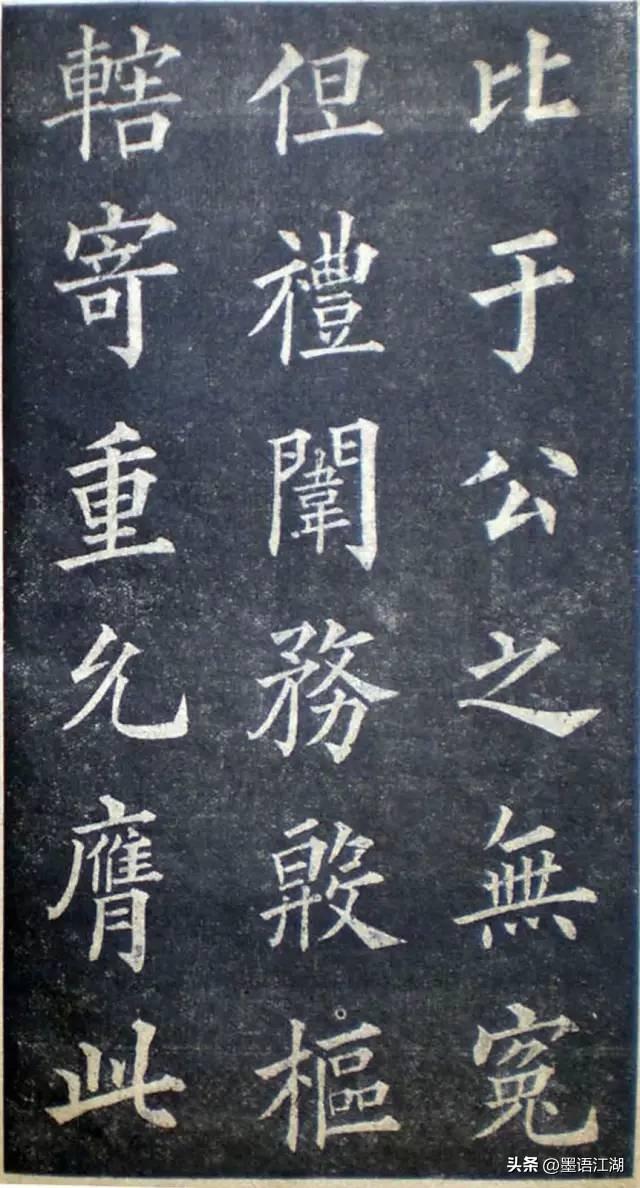 比于公之無冤
但禮闈務殷樞
轄寄重允膺此
头条 @墨语江湖